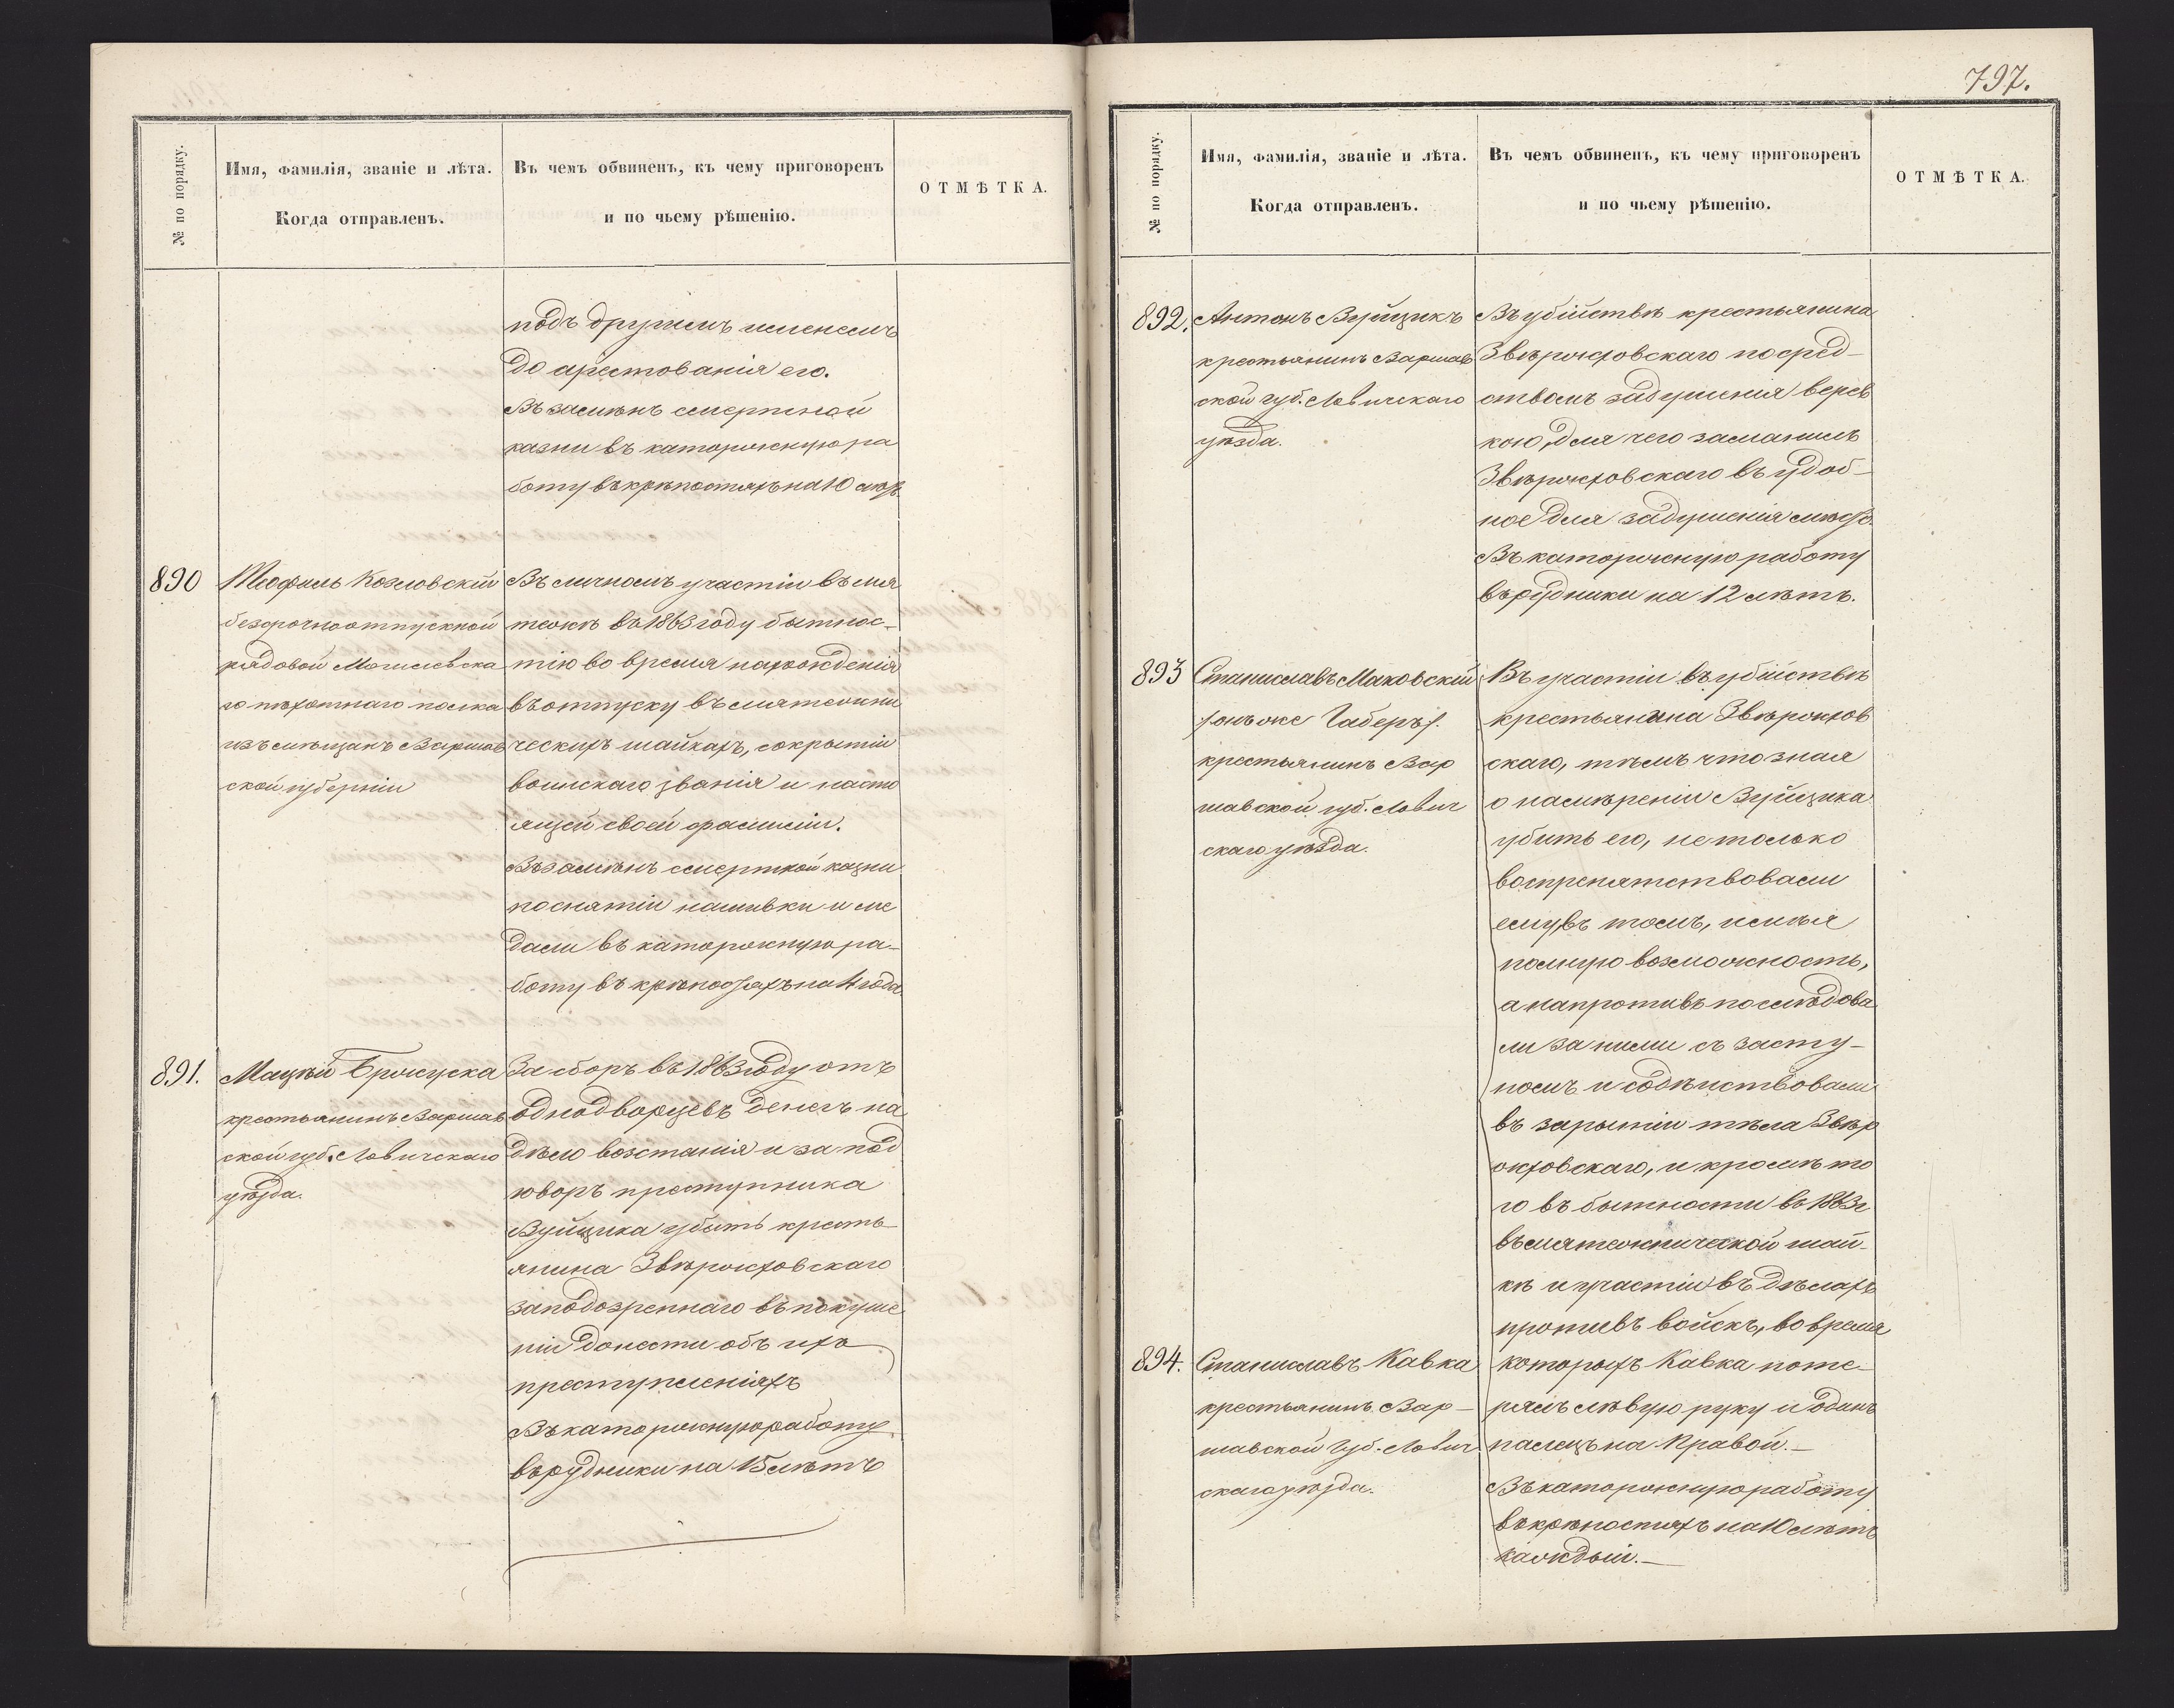 797.
№ по порядку.
Имя, фамилія, званіе и лѣта.
Когда отправленъ.
Въ чемъ обвиненъ, къ чему приговоренъ
и по чьему рѣшенію.
ОТМѢТКА.
подъ другимъ именемъ
до арестованія его.
Взамѣнъ смертной
казни въ каторжную ра
боту въ крѣпостяхъ на 10 лѣтъ
890
Теофиль Козловскій
безсрочноотпускной
рядовой Могилевска
го пѣхотнаго полка
изъ мѣщанъ Варшав
ской губерніи
Въ личномъ участіи въ мя
тежѣ въ 1863 году бытнос-
тію во время нахожденія
въ отпуску въ мятежни
ческихъ шайкахъ, сокрытіи
воинскаго званія и насто
ящей своей фамиліи.
Взамѣнъ смертной казни
по снятіи нашивки и ме
дали въ каторжную ра-
боту въ крѣпостяхъ на 4 года
891.
Мацѣй
крестьянинъ Варшав
ской губ. Ловичскаго
уѣзда.
За сборъ въ 1863 году отъ
однодворцевъ денегъ на
дѣло возстанія и за под
говоръ преступника
Вуйцика убить кресть
янина Звѣржховскаго
заподозреннаго въ покуше
ніи донести объ ихъ
преступленіяхъ
Въ каторжную работу
въ рудники на 15 лѣтъ
№ по порядку.
Имя, фамилія, званіе и лѣта.
Когда отправленъ.
Въ чемъ обвиненъ, къ чему приговоренъ
и по чьему рѣшенію.
ОТМѢТКА.
892.
Антонъ Вуйцикъ
крестьянинъ Варшав
ской губ. Ловичскаго
уѣзда.
Въ убійствѣ крестьянина
Звѣржховскаго посред-
ствомъ задушенія верев
кою, для чего заманилъ
Звѣржховскаго въ удоб-
ное для задушенія мѣсто.
Въ каторжную работу
въ рудники на 12 лѣтъ.
893
Станиславъ Маковскій
/онъ же Габеръ/.
крестьянинъ Вар
шавской губ. Лович
скаго уѣзда.
Въ участіи въ убійствѣ
крестьянина Звѣржхов
скаго, тѣмъ что зная
о намѣреніи Вуйцика
убить его, не только
воспрепятствовали
ему въ томъ, имѣя
полную возможность,
а напротивъ послѣдова
ли за ними съ засту-
помъ и содѣйствовали
въ зарытіи тѣла Звѣр
жховскаго, и кромѣ то
го въ бытности въ 1863 г
въ мятежнической шай-
кѣ и участіи въ дѣлахъ
противъ войскъ, во время
894.
Станиславъ Кавка
крестьянинъ Вар-
шавской Губ. Лович
скаго уѣзда.
которыхъ Кавка поте-
рялъ лѣвую руку и одинъ
палецъ на правой.-
Въ каторжную работу
въ крѣпостяхъ на 10 лѣтъ
каждый.-